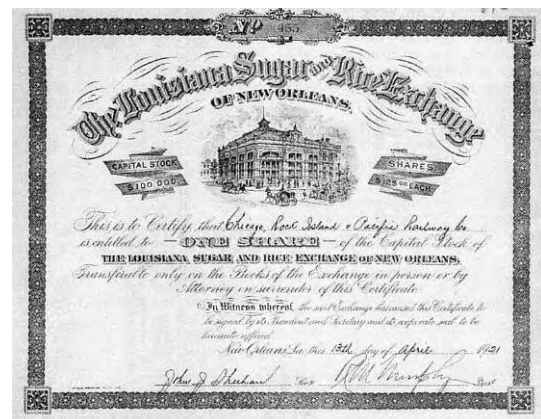 No 455
The Louisiana Sugar and Rice Exchange
OF NEW ORLEANS.
CAPITAL STOCK
$100,000
SHARES
$25.00 EACH
This is to Certify that Chicago, Rock Island & Pacific Railway Co.
is entitled to ONE SHARE of the Capital Stock of
THE LOUISIANA SUGAR AND RICE EXCHANGE OF NEW ORLEANS,
Transferable only on the Books of the Exchange in person or by
Attorney on surrender of this Certificate.
In Witness whereof, the said Exchange has caused this Certificate to
be signed by its President and Secretary and its corporate seal to be
hereunto affixed.
New Orleans La. this 13th day of April 1921
John J Sheehan Secy Prest